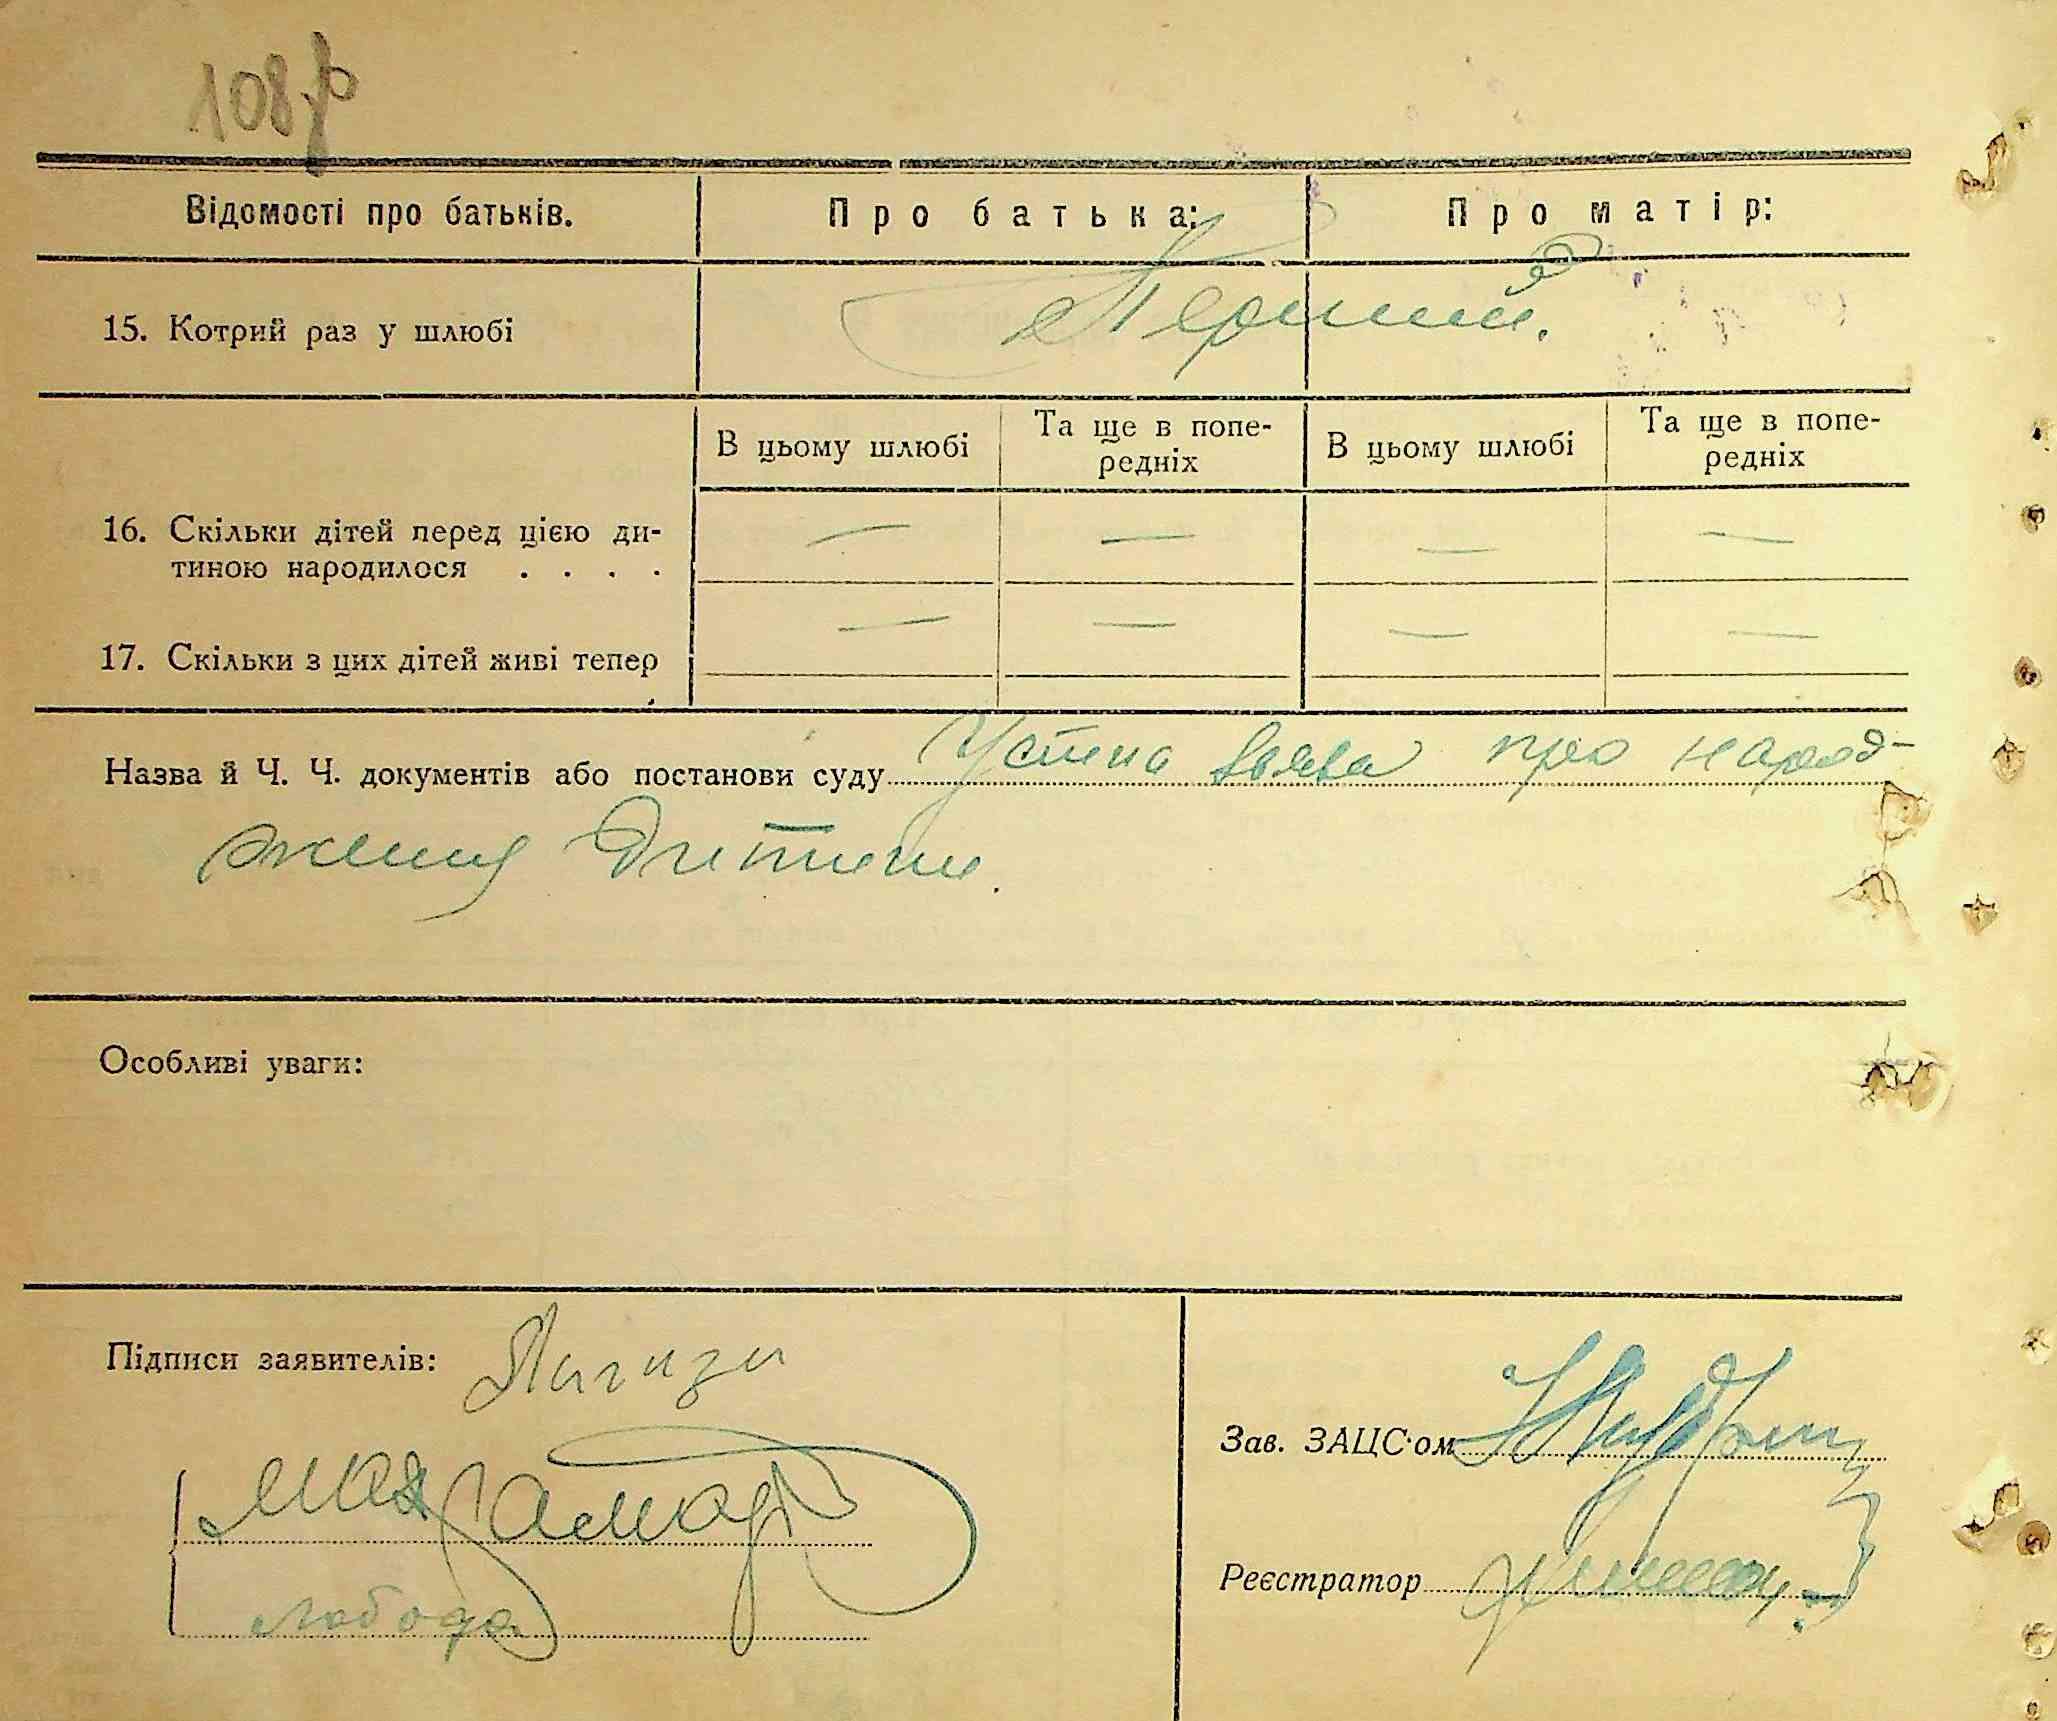 108
Відомості про батьків. Про батька: Про матір:
15. Котрий раз у шлюбі Перший.
В цьому шлюбі Та ще в попе- В цьому шлюбі Та ще в попе-
редніх редніх
16. Скільки дітей перед цією ди- — — — —
тиною народилося . . . .
— — — —
17. Скільки з цих дітей живі тепер
Назва й Ч. Ч. документів або постанови суду Устна заява про народ-
ження дитини.
Особливі уваги:
Підписи заявителів:
Зав. ЗАЦС'ом
Лобода
Реєстратор